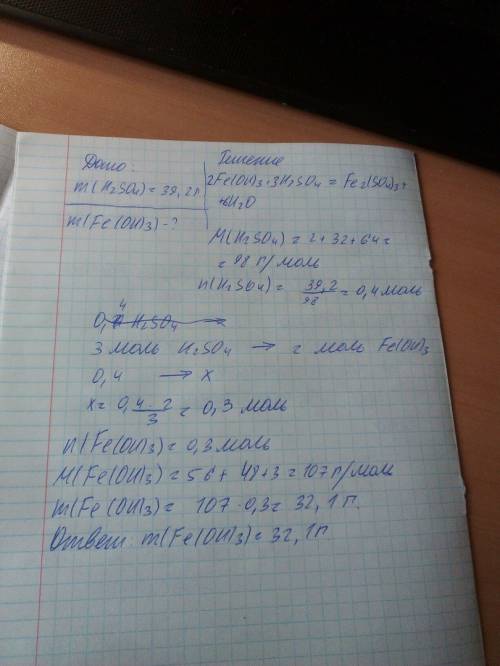 Дано:
m(H2SO4) = 39,2 г
m(Fe(OH)3) - ?
Решение
2Fe(OH)3+3H2SO4 = Fe2(SO4)3+
+6H2O
M(H2SO4) = 2+32+64=
= 98 г/моль
n(H2SO4) = 39,2/98 = 0,4 моль
3 моль H2SO4 → 2 моль Fe(OH)3
0,4 → x
x = 0,4·2/3 = 0,3 моль
n(Fe(OH)3) = 0,3 моль
M(Fe(OH)3) = 56+48+3=107 г/моль
m(Fe(OH)3) = 107·0,3= 32,1 г.
Ответ: m(Fe(OH)3)=32,1 г